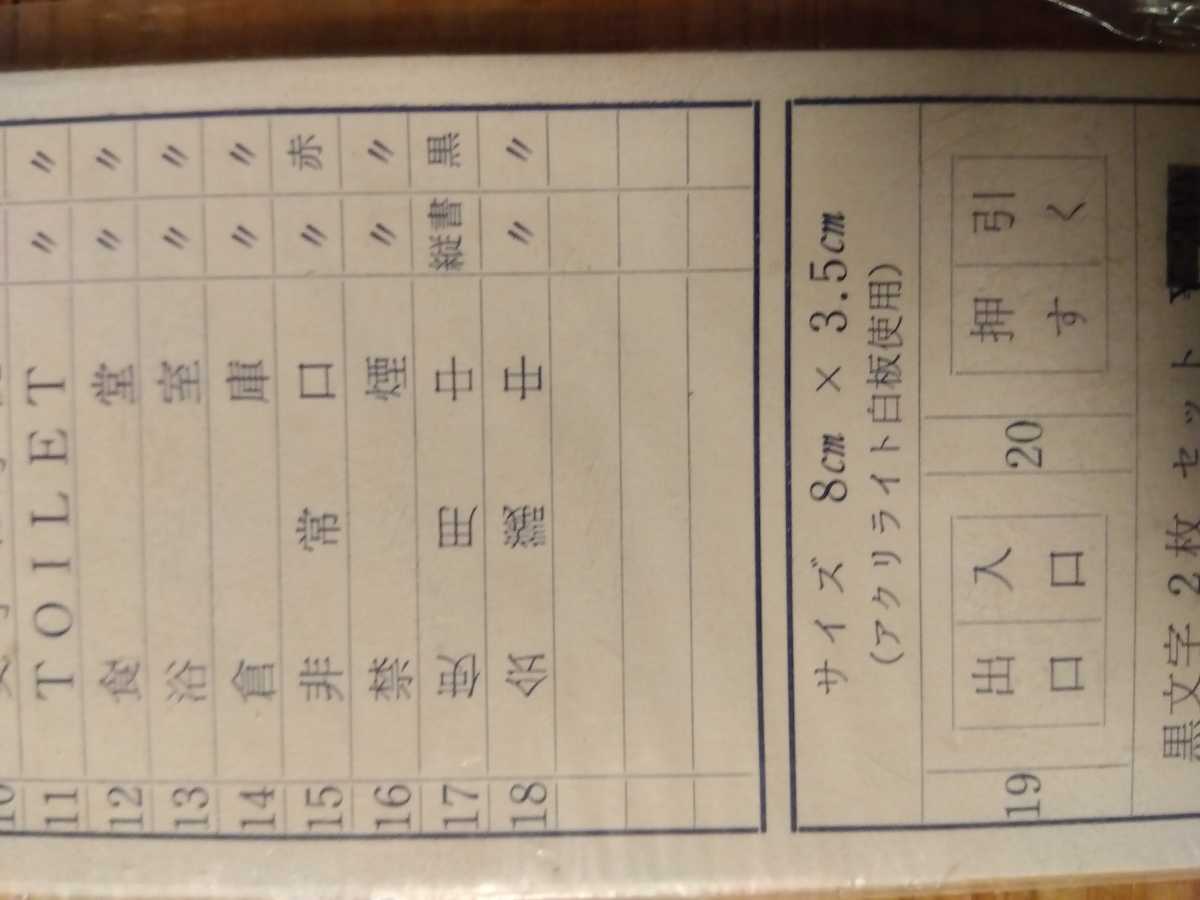 11 TOILET 〃 〃
12 食堂 〃 〃
13 浴室 〃 〃
14 倉庫 〃 〃
15 非常口 〃 赤
16 禁煙 〃 〃
17 使用中 縦書 黒
18 会議中 〃 〃
サイズ 8㎝ × 3.5㎝
(アクリライト白板使用)
19 出口 入口 20 押す 引く
黒文字2枚セット ¥